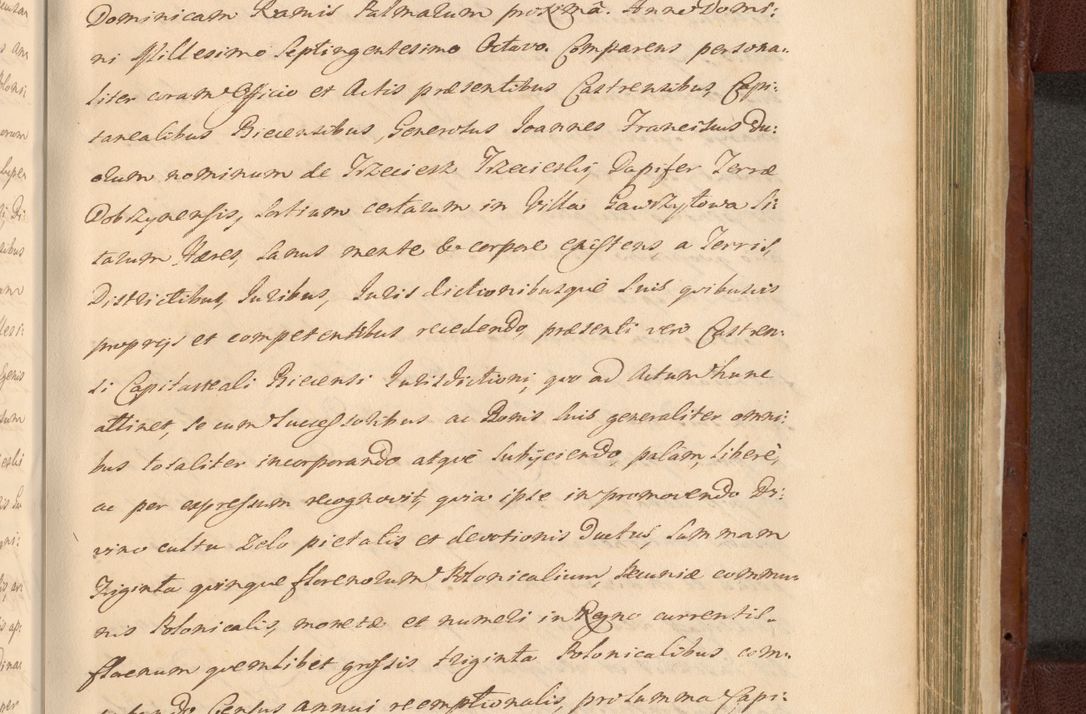 Dominicam Ramis Palmarum proximã. Anno Domi:
ni Millesimo Septingentesimo Octavo. Comparens persona:
liter coram Officio et Actis præsentibus Castrensibus, Capi:
tanealibus Biecensibus, Generosus Joannes Franciscus du:
orum nominum de Trzeciesz Trzecieski, Dapifer Terræ
Dobrzynensis, Sortium certarum in Villa Gawrzyłowa Si:
tarum Hæres, Sanus mente & corpore existens a Terris,
Districtibus, Juribus, Jurisdictionibusquè Suis quibusvis
proprijs et competentibus recedendo, præsenti vero Castren:
si Capitaneali Biecensi Jurisdictioni, quo ad Actum hunc
attinet, Se cum Successoribus ac Bonis Suis generaliter omni:
bus totaliter incorporando atquè Subijciendo, palam, liberè,
ac per expressum recognovit, quia ipse in promovendo Di:
vino cultu Zelo pietatis et devotionis Ductus, Summam
Triginta quinque florenorum Polonicalium, Pecuniæ commu:
nis Polonicalis, monetæ et numeri in Regno currentis.
florenum quemlibet grossis triginta Polonicalibus com:
Census annui reemptionalis, pro Summa Capi: